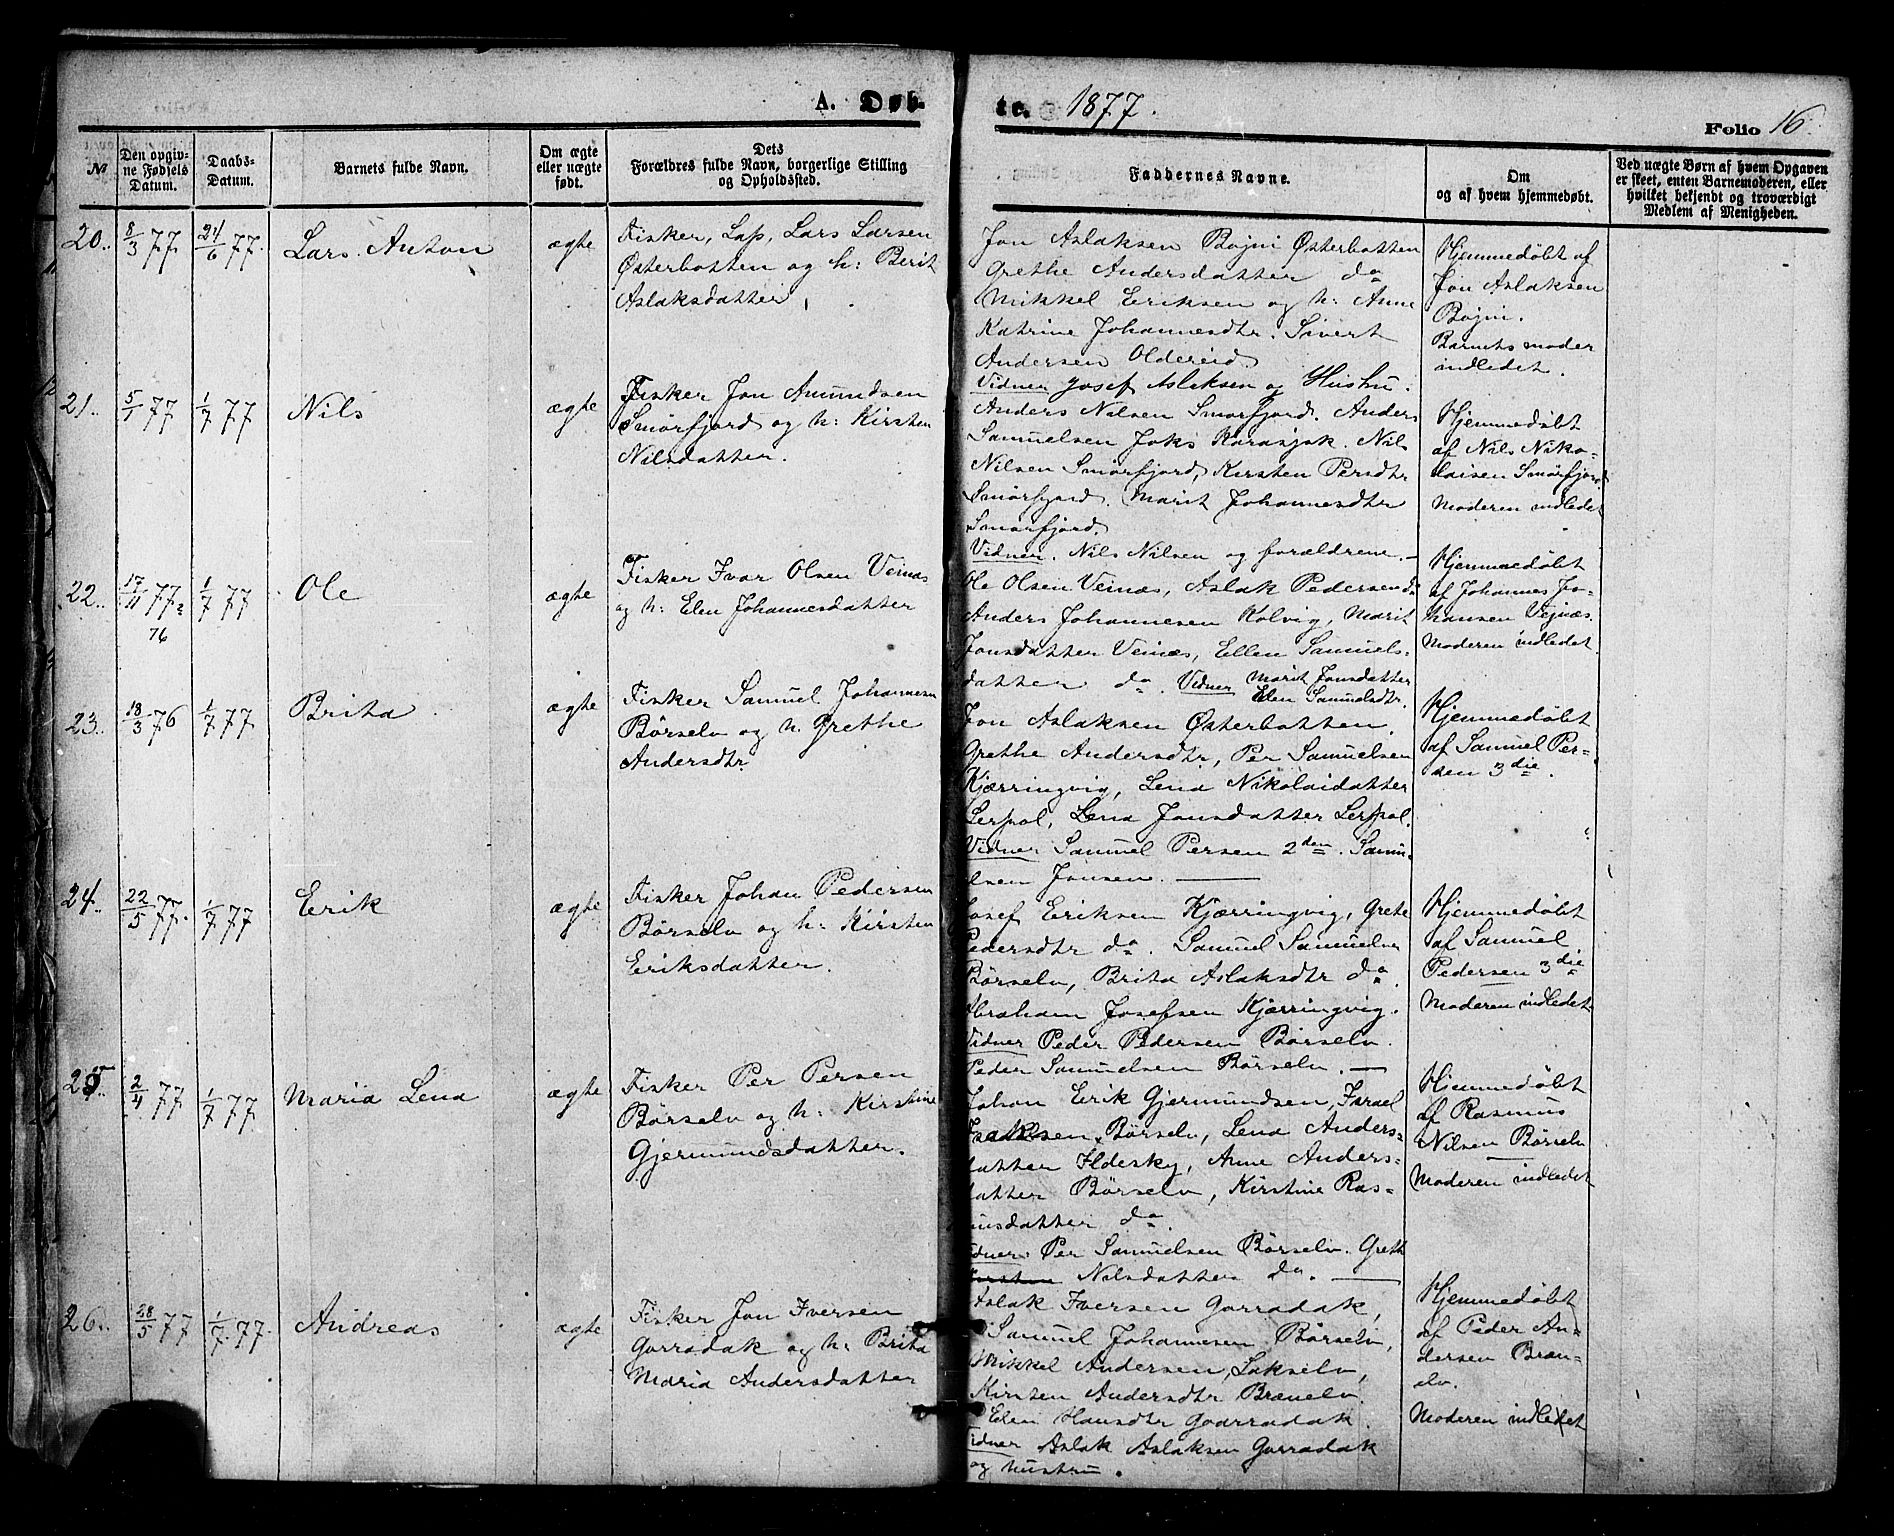 A. Døbte. 1877.
Folio 16.
№
Den opgivne Fødsels Datum.
Daabs-Datum.
Barnets fulde Navn.
Om ægte eller uægte født.
Dets Forældres fulde Navn, borgerlige Stilling og Opholdssted.
Faddernes Navne.
Om og af hvem hjemmedøbt.
Ved uægte Børn af hvem Opgaven er skeet, enten Barnemoderen, eller hvilket bekjendt og troværdigt Medlem af Menigheden.
20.. 8/3 77. 24/6 77. Lars Anton ægte
Fisker, Lap, Lars Larsen
Østerbotten og h: Berit
Aslaksdatter.
Jon Aslaksen Bojni Østerbotten
Grethe Andersdatter do
Mikkel Eriksen og h: Anne
Katrine Johannesdtr. Sivert
Andersen Oldereid
Vidner Josef Aslaksen og Hustru.
Hjemmedøbt af
Jon Aslaksen
Bojni.
Barnets moder
indledet.
21.. 5/1 77 1/7 77 Nils ægte
Fisker Jon Amundsen
Smørfjord og h: Kirsten
Nilsdatter.
Anders Nilsen Smørfjord. Anders
Samuelsen Joks Karasjok. Nils
Nilsen Smørfjord, Kirsten Persdtr
Smørfjord. Marit Johannesdtr
Smørfjord.
Vidner. Nils Nilsen og forældrene.
Hjemmedøbt
af Nils Niko-
laisen Smørfjord.
Moderen indledet
22.. 17/11 77. 76 1/7 77 Ole ægte
Fisker Ivar Olsen Veinæs
og h: Elen Johannesdatter
Ole Olsen Veinæs, Aslak Pedersen do
Anders Johannesen Kolvig, Marit
Jonsdatter Veinæs, Ellen Samuels-
datter do. Vidner Marit Jonsdatter
Elen Samuelsdtr.
Hjemmedøbt
af Johannes Jo-
hansen Vejnæs.
Moderen indledet.
23.. 18/3 76 1/7 77. Brita ægte
Fisker Samuel Johannesen
Børselv og h. Grethe
Andersdtr
Jon Aslaksen Østerbotten.
Grethe Andersdtr, Per Samuelsen
Kjærringvig, Lena Nikolaidatter
Lerpol, Lena Jonsdatter Lerpol.
Vidner Samuel Persen 2den. Samu-
elsen Jonsen.
Hjemmedøbt
af Samuel Per-
den 3die.
24.. 22/5 77. 1/7 77 Erik ægte
Fisker Johan Pedersen
Børselv og h: Kirsten
Eriksdatter.
Josef Eriksen Kjærringvig, Grete
Pedersdtr do. Samuel Samuelsen
Børselv, Brita Aslaksdtr do.
Abraham Josefsen Kjærringvig.
Vidner Peder Pedersen Børselv.
Peder Samuelsen Børselv.
Hjemmedøbt
af Samuel
Pedersen 3die
Moderen indledet
25.. 2/4 77 1/7 77. Maria Lena ægte
Fisker Per Persen
Børselv og h: Kirstine
Gjermundsdatter.
Johan Erik Gjermundsen, Israel
Isaksen Børselv, Lena Anders-
datter Ildesky, Anne Anders-
datter Børselv, Kirstine Ras-
musdatter do.
Vidner: Per Samuelsen Børselv. Greth
Kirsten Nilsdatter do.
Hjemmedøbt
af Rasmus
Nilsen Børselv
Moderen indledet
26.. 28/5 77 1/7 77. Andreas ægte
Fisker Jon Iversen
Gorradak og h: Brita
Maria Andersdatter
Aslak Iversen Gorradak,
Samuel Johannesen Børselv,
Mikkel Andersen, Lakselv,
Kirsten Andersdtr Brænelv.
Elen Hansdtr Goarradak.
Vidner Aslak Aslaksen Gorradak
og hustru.
Hjemmedøbt
af Peder An-
dersen Bræn-
elv.
Moderen indledet